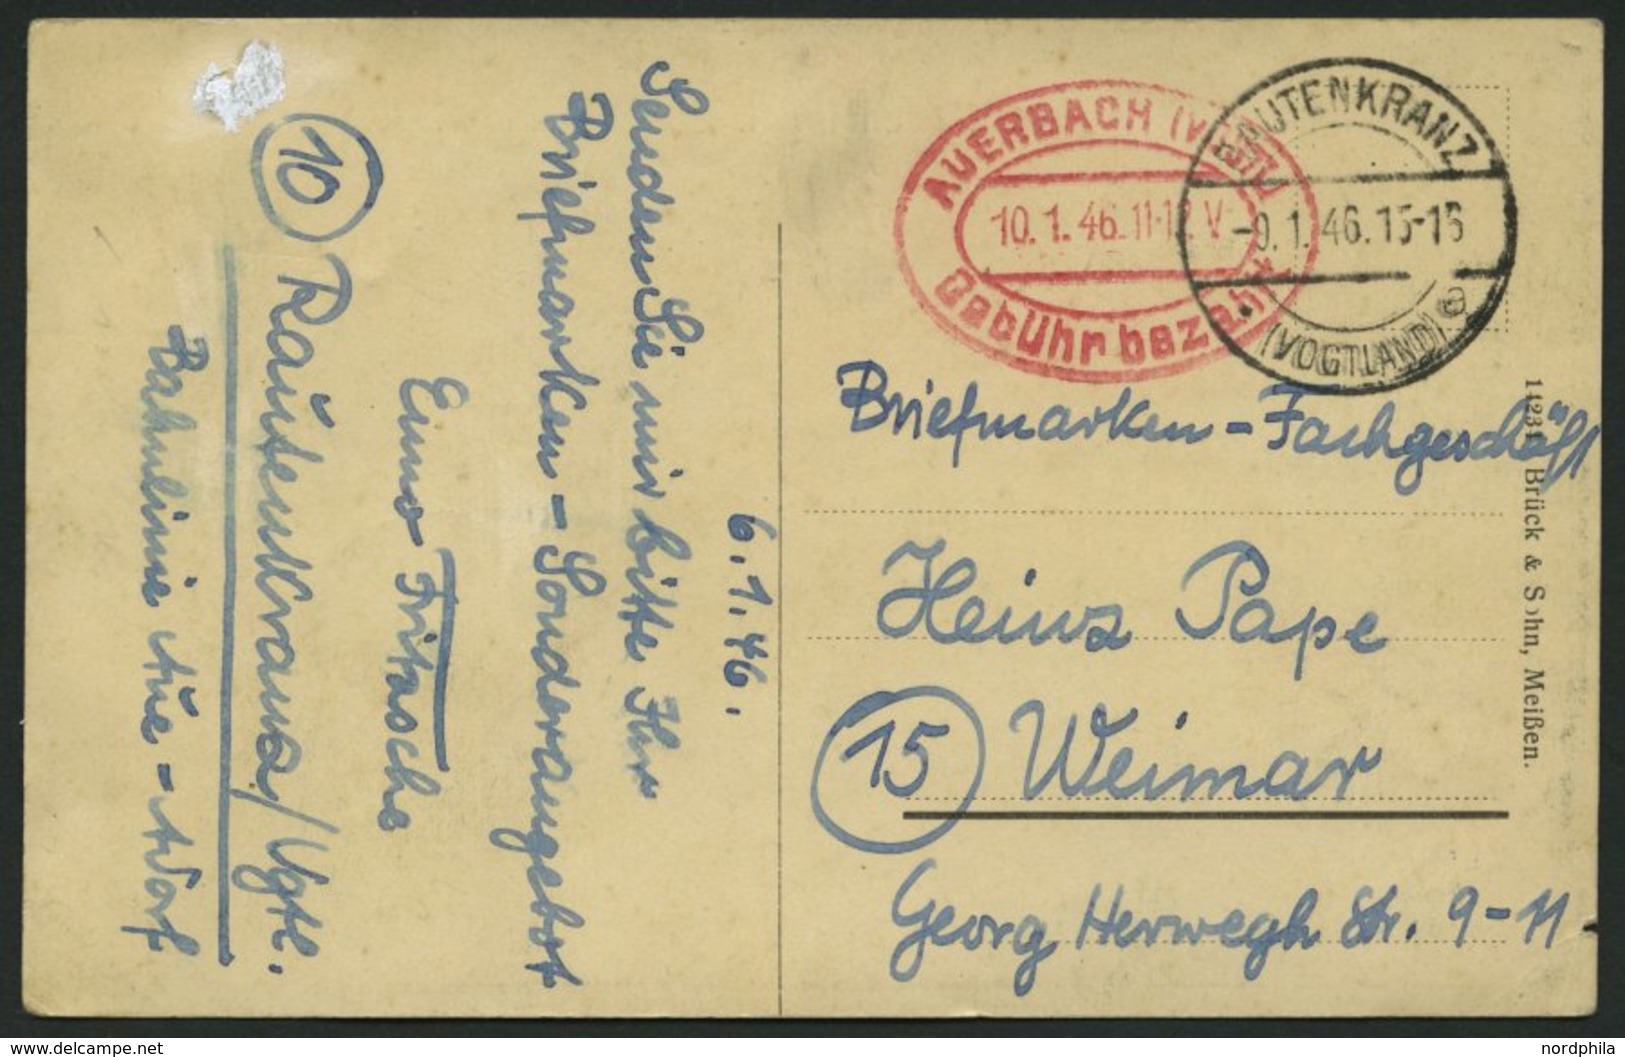 6. 1. 46.
Senden Sie mir bitte Ihr
Briefmarken-Sonderangebot
Enno Fritzsche
10 Rautenkranz/Vgtl.
Bahnlinie Aue-Adorf
AUERBACH (VOGTL)
10. 1. 46. 11-12 V
Gebühr bezahlt
RAUTENKRANZ
-9. 1. 46. 15-16
(VOGTLAND)
a
Briefmarken-Fachgeschäft
Heinz Pape
15 Weimar
Georg Herwegh Str. 9-11
Brück & Sohn, Meißen.
www.delcampe.net
nordphila